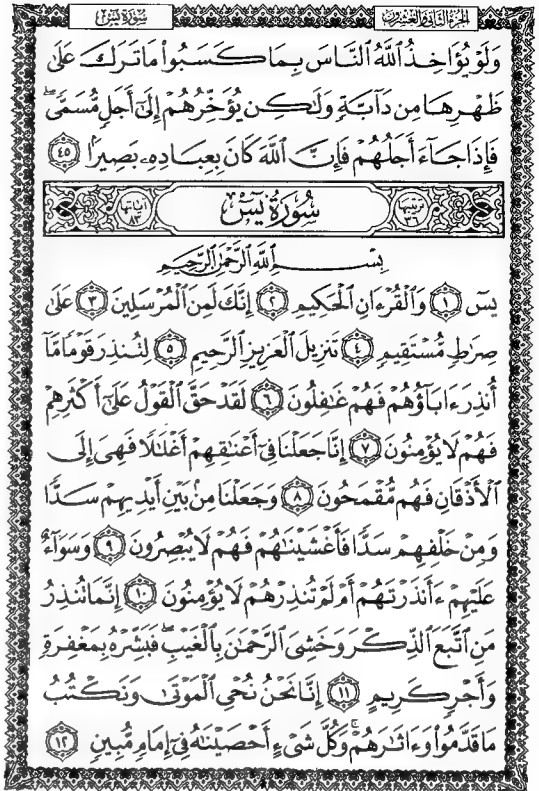 سورة يس الجزء الثاني والعشرون
وَلَوْ يُؤَاخِذُ ٱللَّهُ ٱلنَّاسَ بِمَا كَسَبُوا۟ مَا تَرَكَ عَلَىٰ
ظَهْرِهَا مِن دَآبَّةٍ وَلَـٰكِن يُؤَخِّرُهُمْ إِلَىٰٓ أَجَلٍ مُّسَمًّى ۖ
فَإِذَا جَآءَ أَجَلُهُمْ فَإِنَّ ٱللَّهَ كَانَ بِعِبَادِهِۦ بَصِيرًۢا ٤٥
ترتيبها ٣٦ سُورَةُ يسٓ آياتها ٨٣
بِسْمِ ٱللَّهِ ٱلرَّحْمَـٰنِ ٱلرَّحِيمِ
يسٓ ١ وَٱلْقُرْءَانِ ٱلْحَكِيمِ ٢ إِنَّكَ لَمِنَ ٱلْمُرْسَلِينَ ٣ عَلَىٰ
صِرَٰطٍ مُّسْتَقِيمٍ ٤ تَنزِيلَ ٱلْعَزِيزِ ٱلرَّحِيمِ ٥ لِتُنذِرَ قَوْمًا مَّآ
أُنذِرَ ءَابَآؤُهُمْ فَهُمْ غَـٰفِلُونَ ٦ لَقَدْ حَقَّ ٱلْقَوْلُ عَلَىٰٓ أَكْثَرِهِمْ
فَهُمْ لَا يُؤْمِنُونَ ٧ إِنَّا جَعَلْنَا فِىٓ أَعْنَـٰقِهِمْ أَغْلَـٰلًا فَهِىَ إِلَى
ٱلْأَذْقَانِ فَهُم مُّقْمَحُونَ ٨ وَجَعَلْنَا مِنۢ بَيْنِ أَيْدِيهِمْ سَدًّا
وَمِنْ خَلْفِهِمْ سَدًّا فَأَغْشَيْنَـٰهُمْ فَهُمْ لَا يُبْصِرُونَ ٩ وَسَوَآءٌ
عَلَيْهِمْ ءَأَنذَرْتَهُمْ أَمْ لَمْ تُنذِرْهُمْ لَا يُؤْمِنُونَ ١٠ إِنَّمَا تُنذِرُ
مَنِ ٱتَّبَعَ ٱلذِّكْرَ وَخَشِىَ ٱلرَّحْمَـٰنَ بِٱلْغَيْبِ ۖ فَبَشِّرْهُ بِمَغْفِرَةٍ
وَأَجْرٍ كَرِيمٍ ١١ إِنَّا نَحْنُ نُحْىِ ٱلْمَوْتَىٰ وَنَكْتُبُ
مَا قَدَّمُوا۟ وَءَاثَـٰرَهُمْ ۚ وَكُلَّ شَىْءٍ أَحْصَيْنَـٰهُ فِىٓ إِمَامٍ مُّبِينٍ ١٢